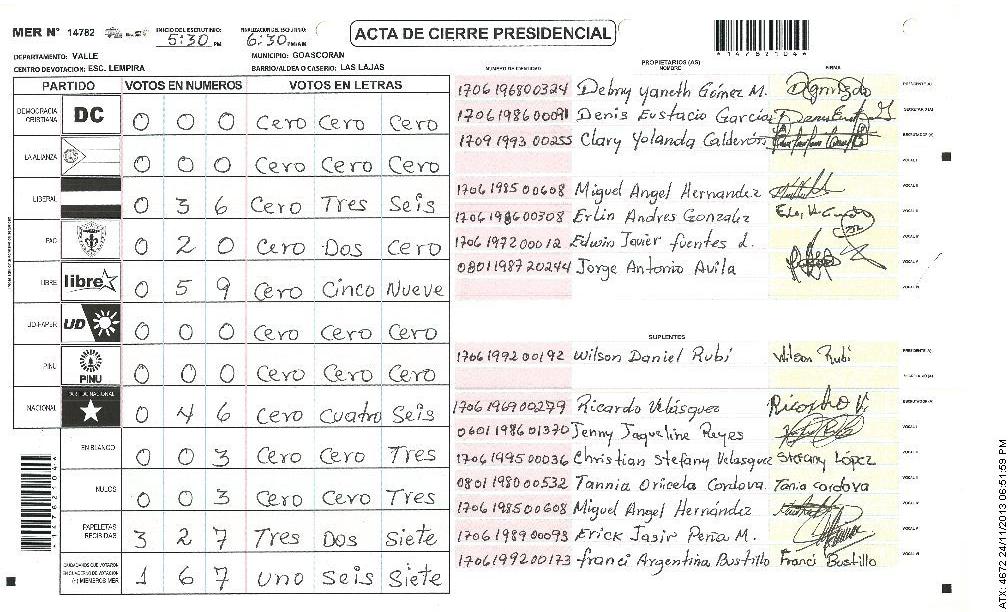 MER N° 14782 INICIO DEL ESCRUTINIO: 5:30 PM FINALIZACION DEL ESCRUTINIO: 6:30 PM/AM
ACTA DE CIERRE PRESIDENCIAL
*14782104*
DEPARTAMENTO: VALLE MUNICIPIO: GOASCORAN
CENTRO DE VOTACION: ESC. LEMPIRA BARRIO/ALDEA O CASERIO: LAS LAJAS
PARTIDO VOTOS EN NUMEROS VOTOS EN LETRAS
DEMOCRACIA CRISTIANA DC 0 0 0 Cero Cero Cero
LA ALIANZA 0 0 0 Cero Cero Cero
LIBERAL 0 3 6 Cero Tres Seis
PAC 0 2 0 Cero Dos Cero
LIBRE libre 0 5 9 Cero Cinco Nueve
UD-FAPER UD 0 0 0 Cero Cero Cero
PINU PINU 0 0 0 Cero Cero Cero
NACIONAL PARTIDO NACIONAL 0 4 6 Cero Cuatro Seis
EN BLANCO 0 0 3 Cero Cero Tres
NULOS 0 0 3 Cero Cero Tres
PAPELETAS RECIBIDAS 3 2 7 Tres Dos Siete
CIUDADANOS QUE VOTARON EN CUADERNO DE VOTACION (+) MIEMBROS MER 1 6 7 Uno Seis Siete
PROPIETARIOS (AS)
NUMERO DE IDENTIDAD NOMBRE FIRMA
1706196800324 Debny Yaneth Gómez M. PRESIDENTE (A)
1706198600091 Denis Eustacio García SECRETARIO (A)
1709199300255 Clary Yolanda Calderón ESCRUTADOR (A)
VOCAL I
1706198500608 Miguel Angel Hernandez VOCAL II
1706198600308 Erlin Andres Gonzalez VOCAL III
1706197200012 Edwin Javier fuentes d. VOCAL IV
0801198720244 Jorge Antonio Avila VOCAL V
VOCAL VI
SUPLENTES
1706199200192 Wilson Daniel Rubí Wilson Rubi PRESIDENTE (A)
SECRETARIO (A)
1706196900279 Ricardo Velásquez Ricardo V. ESCRUTADOR (A)
0601198601370 Jenny Jaqueline Reyes VOCAL I
1706199500036 Christian Stefany Velasquez Stefany López VOCAL II
0801198000532 Tannia Oricela Cordova. Tania Cordova VOCAL III
1706198500608 Miguel Angel Hernández VOCAL IV
1706198900093 Erick Jasir Peña M. VOCAL V
1706199200173 franci Argentina Bustillo Franci Bustillo VOCAL VI
*14782104*
ATX: 4672 24/11/2013 06:51:59 PM